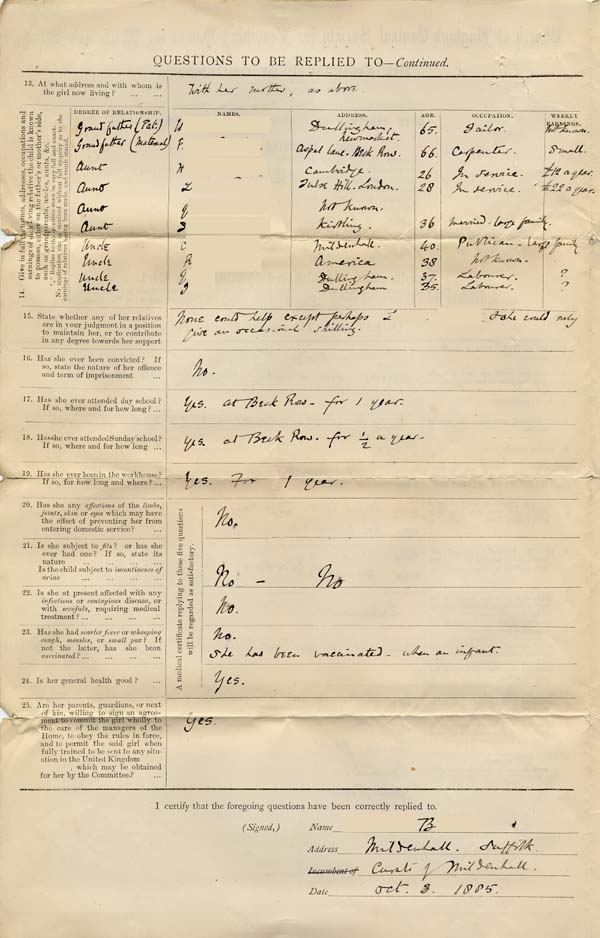 QUESTIONS TO BE REPLIED TO—Continued.
13. At what address and with whom is the girl now living? ... ... With her mother, as above.
14. Give in full the names, addresses, occupations and earnings of
DEGREE OF RELATIONSHIP. NAMES. ADDRESS. AGE. OCCUPATION. WEEKLY EARNINGS.
Grandfather (Pat:) W Dullingham, Newmarket. 65. Tailor. Not known.
Grandfather (Maternal) F. Aspal Lane. Beck Row. 66. Carpenter. Small.
Aunt H Cambridge. 26 In service. £12 a year.
Aunt L Tulse Hill. London. 28 In service. £22 a year.
Aunt J Not known.
Aunt S Kirtling. 36 married. large family.
Uncle C Mildenhall. 40. Publican - large family
Uncle R America 38 Not known.
Uncle J. Dullingham. 37. Labourer. ?
Uncle J Dullingham 35. Labourer. ?
15. State whether any of her relatives
are in your judgment in a position
to maintain her, or to contribute
in any degree towards her support
None could help except perhaps L & she could only
give an occasional shilling.
16. Has she ever been convicted? If
so, state the nature of her offence
and term of imprisonment ...
No.
17. Has she ever attended day school?
If so, where and for how long? ...
Yes. at Beck Row - for 1 year.
18. Has she ever attended Sunday school?
If so, where and for how long ...
Yes. at Beck Row. for ½ a year.
19. Has she ever been in the workhouse?
If so, for how long and where? ...
Yes. For 1 year.
A medical certificate replying to these five questions
will be regarded as satisfactory.
20. Has she any affections of the limbs,
joints, skin or eyes which may have
the effect of preventing her from
entering domestic service? ...
No.
21. Is she subject to fits? or has she
ever had one? If so, state its
nature ... ... ... ...
Is the child subject to incontinence of
urine ... ... ... ...
No - No
22. Is she at present affected with any
infectious or contagious disease, or
with scrofula, requiring medical
treatment? ... ... ... ...
No.
23. Has she had scarlet fever or whooping
cough, measles, or small pox? If
not the latter, has she been
vaccinated? ... ... ... ...
No.
She has been vaccinated - when an infant.
24. Is her general health good? ...
Yes.
25. Are her parents, guardians, or next
of kin, willing to sign an agree-
ment to commit the girl wholly to
the care of the managers of the
Home, to obey the rules in force,
and to permit the said girl when
fully trained to be sent to any situ-
ation in the United Kingdom
, which may be obtained
for her by the Committee? ...
Yes.
I certify that the foregoing questions have been correctly replied to.
(Signed,) Name B
Address Mildenhall. Suffolk.
Incumbent of Curate of Mildenhall.
Date Oct. 3. 1885.